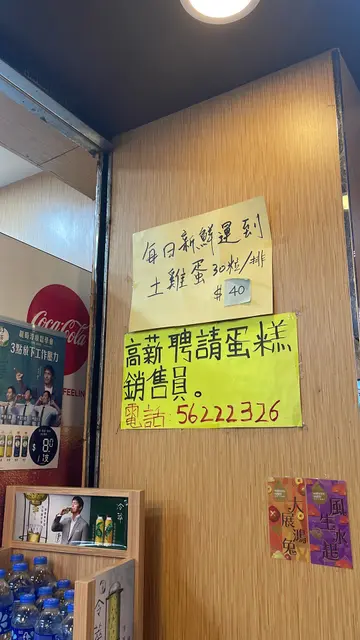 每日新鮮運到
土雞蛋30粒/排
$40
高薪聘請蛋糕
銷售員。
電話:56222326
Coca-Cola
3點放下工作壓力
FEELIN
$8.0
大展鴻兔
風生水起